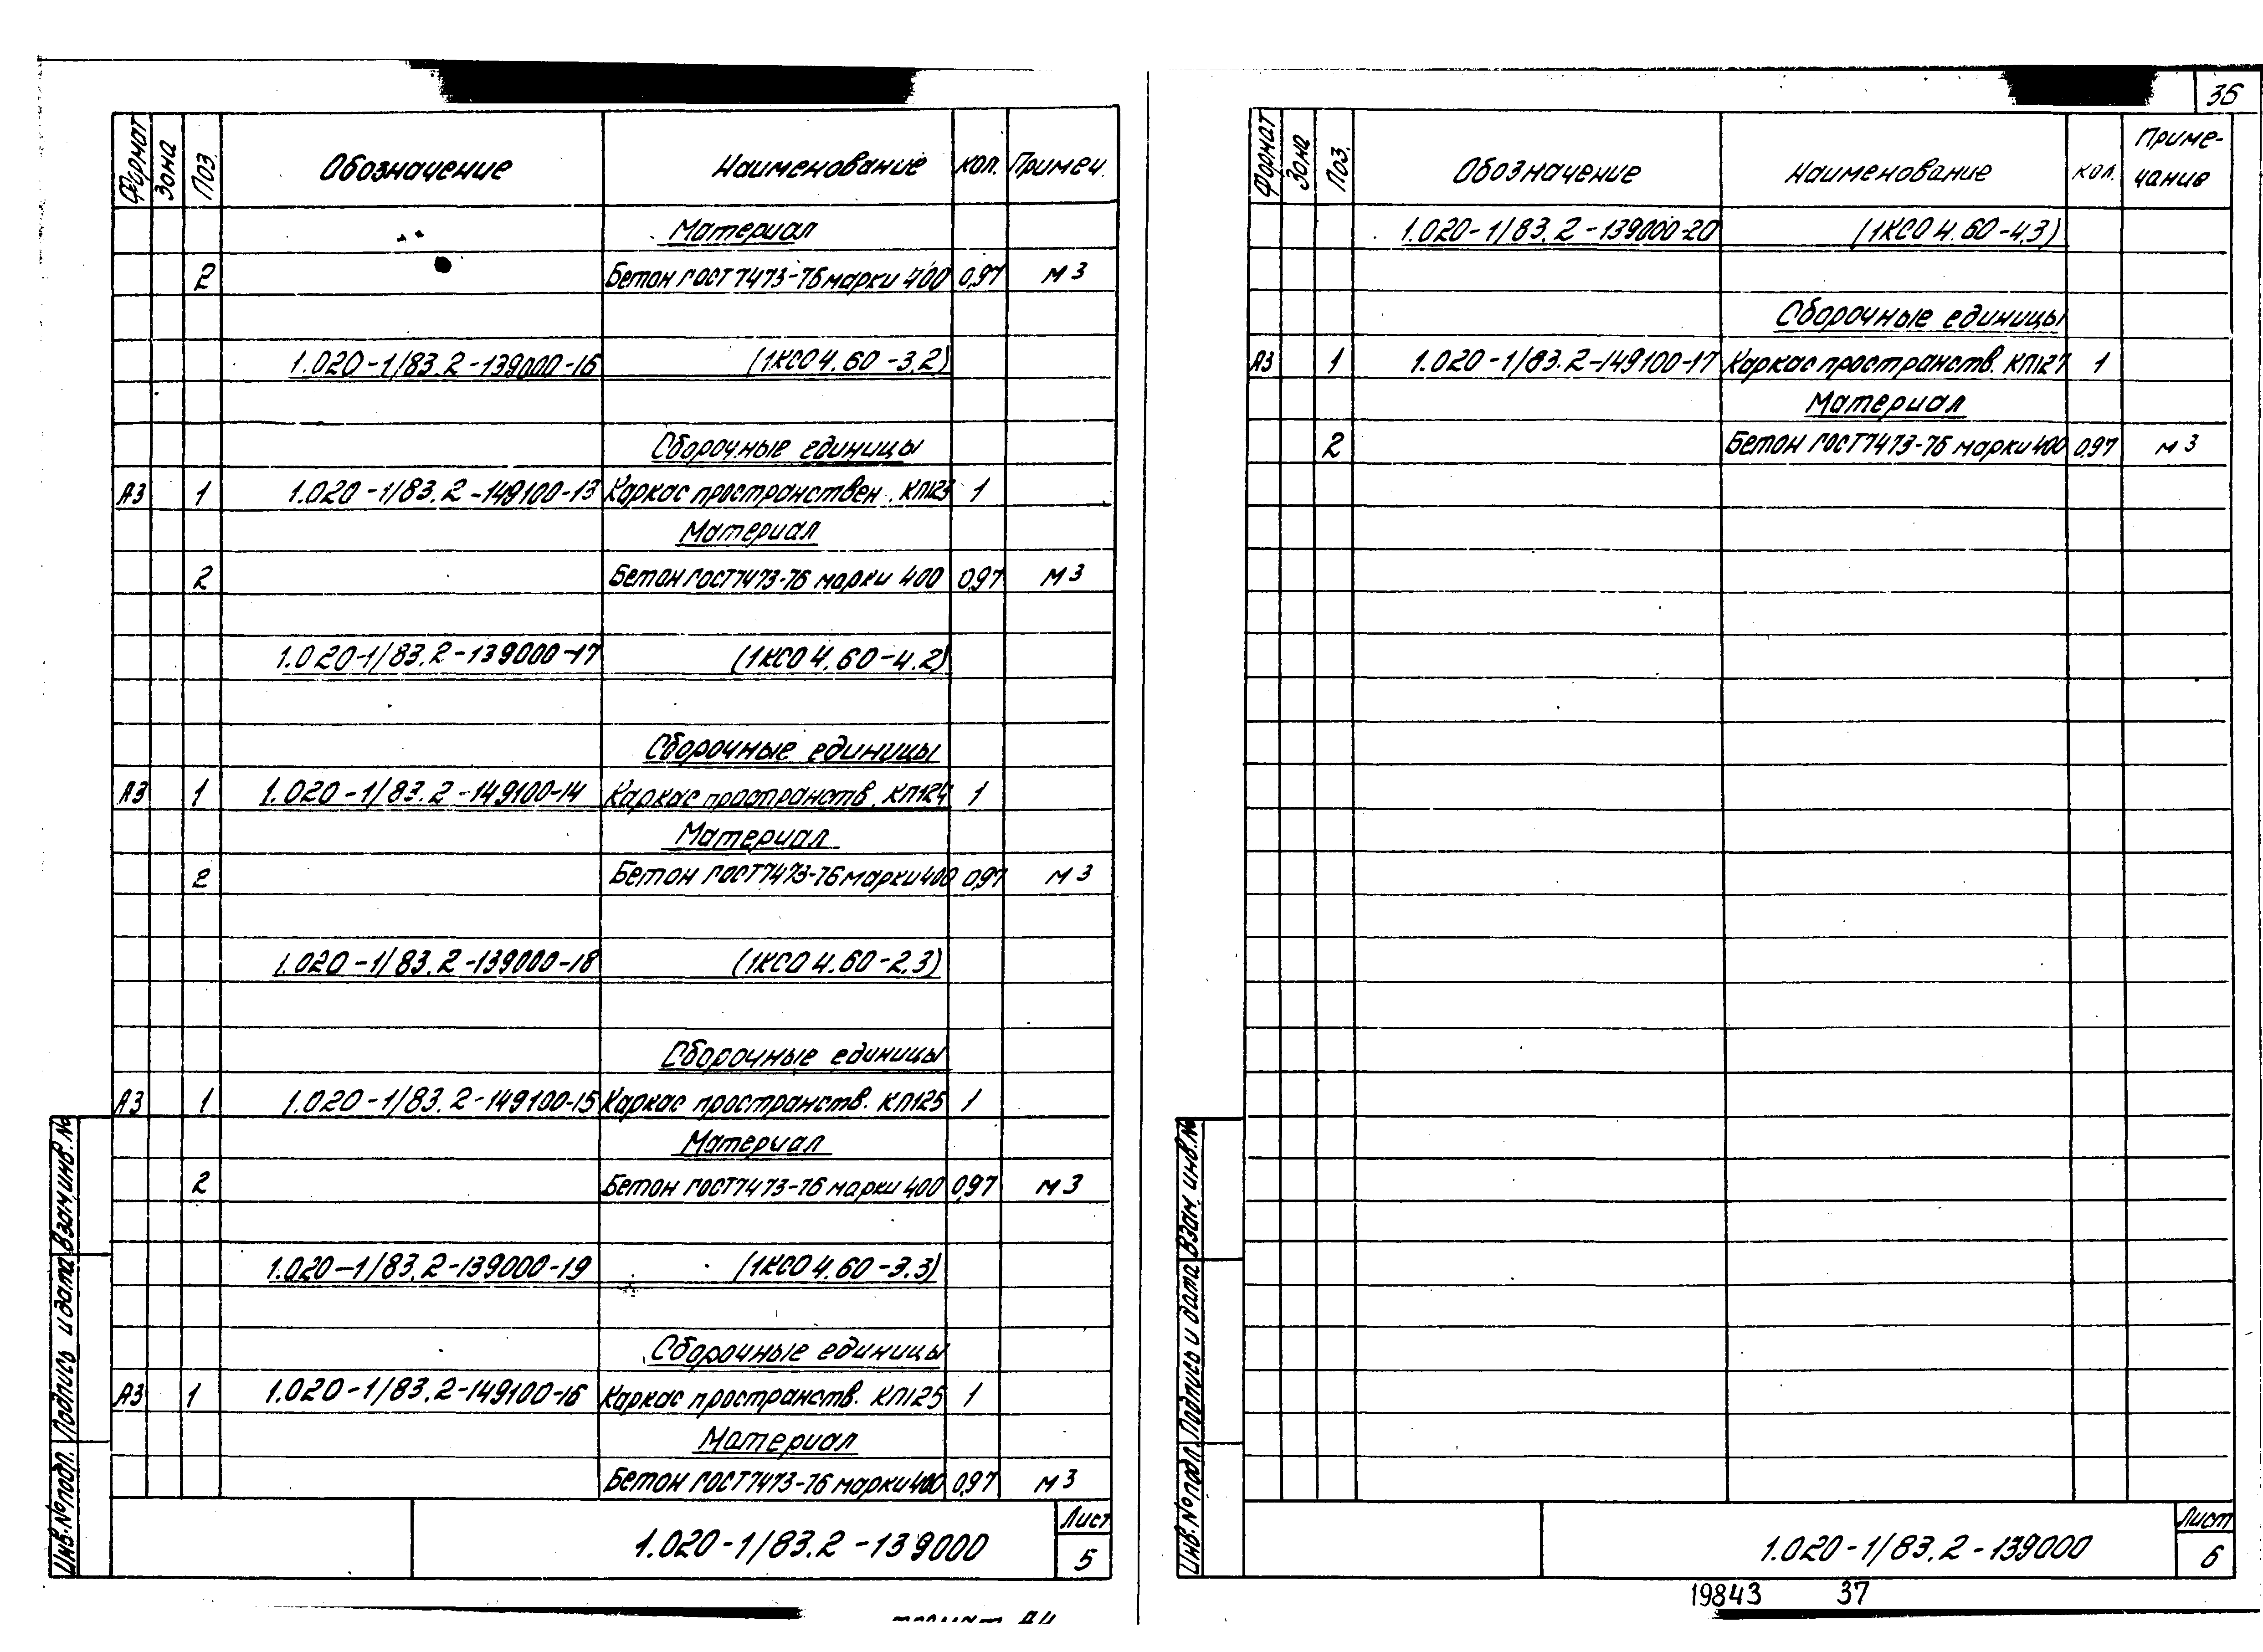 Формат Зона Поз. Обозначение Наименование кол. Примеч.
Материал
2 Бетон ГОСТ 7473-76 марки 400 0,97 м3
1.020-1/83.2-139000-16 (1КСО 4.60-3.2)
Сборочные единицы
А3 1 1.020-1/83.2-149100-13 Каркас пространствен. КП123 1
Материал
2 Бетон ГОСТ 7473-76 марки 400 0,97 м3
1.020-1/83.2-139000-17 (1КСО 4.60-4.2)
Сборочные единицы
А3 1 1.020-1/83.2-149100-14 Каркас пространств. КП124 1
Материал
2 Бетон ГОСТ 7473-76 марки 400 0,97 м3
1.020-1/83.2-139000-18 (1КСО 4.60-2.3)
Сборочные единицы
А3 1 1.020-1/83.2-149100-15 Каркас пространств. КП125 1
Материал
2 Бетон ГОСТ 7473-76 марки 400 0,97 м3
1.020-1/83.2-139000-19 (1КСО 4.60-3.3)
Сборочные единицы
А3 1 1.020-1/83.2-149100-16 Каркас пространств. КП125 1
Материал
Бетон ГОСТ 7473-76 марки 400 0,97 м3
Инв. № подл. Подпись и дата Взам. инв. №
1.020-1/83.2-139000
Лист
5
36
Формат Зона Поз. Обозначение Наименование кол. Приме-
чание
1.020-1/83.2-139000-20 (1КСО 4.60-4.3)
Сборочные единицы
А3 1 1.020-1/83.2-149100-17 Каркас пространств. КП127 1
Материал
2 Бетон ГОСТ 7473-76 марки 400 0,97 м3
Инв. № подл. Подпись и дата Взам. инв. №
1.020-1/83.2-139000
Лист
6
19843 37